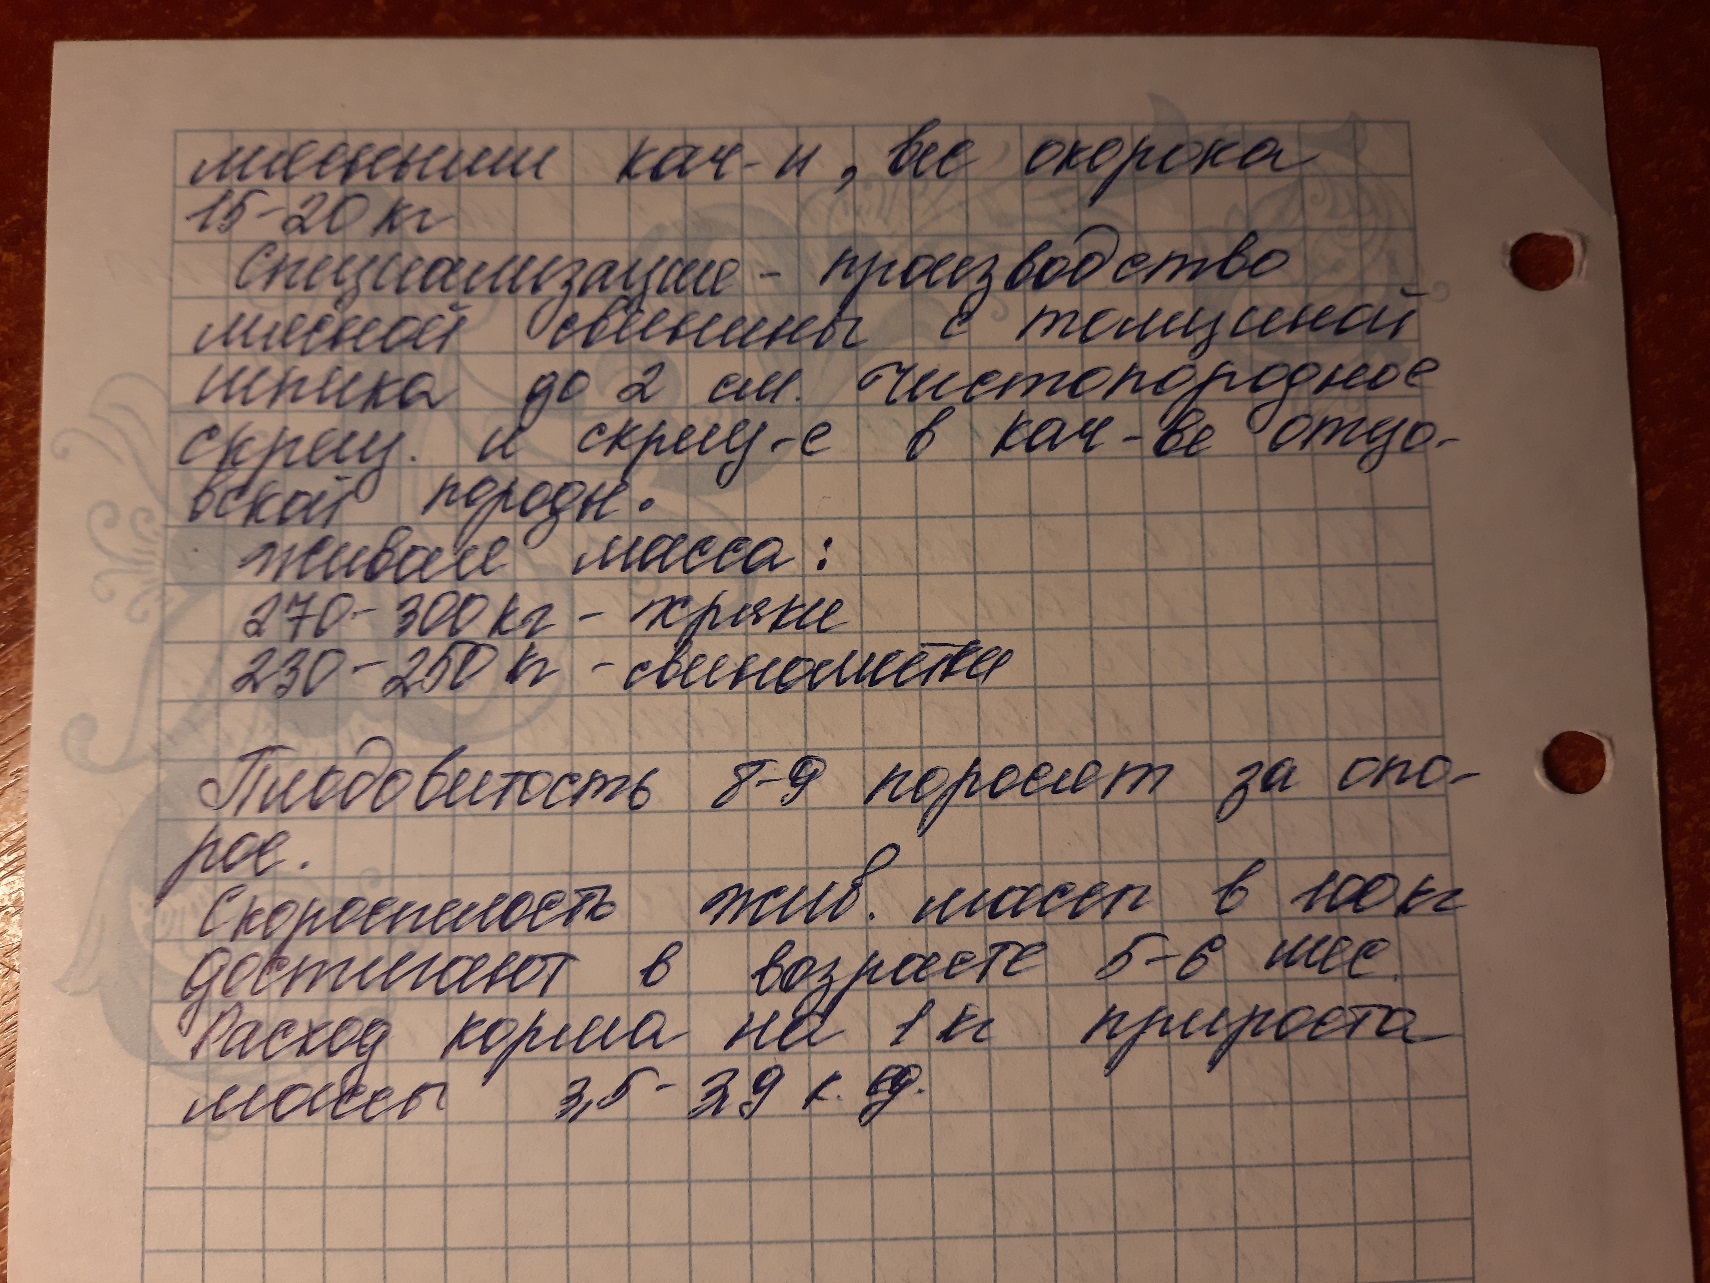 мясными кач-и, вес окорока
15-20 кг
Специализация - производство
мясной свинины с толщиной
шпика до 2 см. Чистопородное
скрещ. и скрещ-е в кач-ве отцо-
вской породы.
Живая масса:
270-300 кг - хряки
230-250 кг - свиноматки
Плодовитость 8-9 поросят за опо-
рос.
Скороспелость жив. массы в 100 кг
достигают в возрасте 5-6 мес.
Расход корма на 1 кг прироста
массы 3,5-3,9 к. ед.